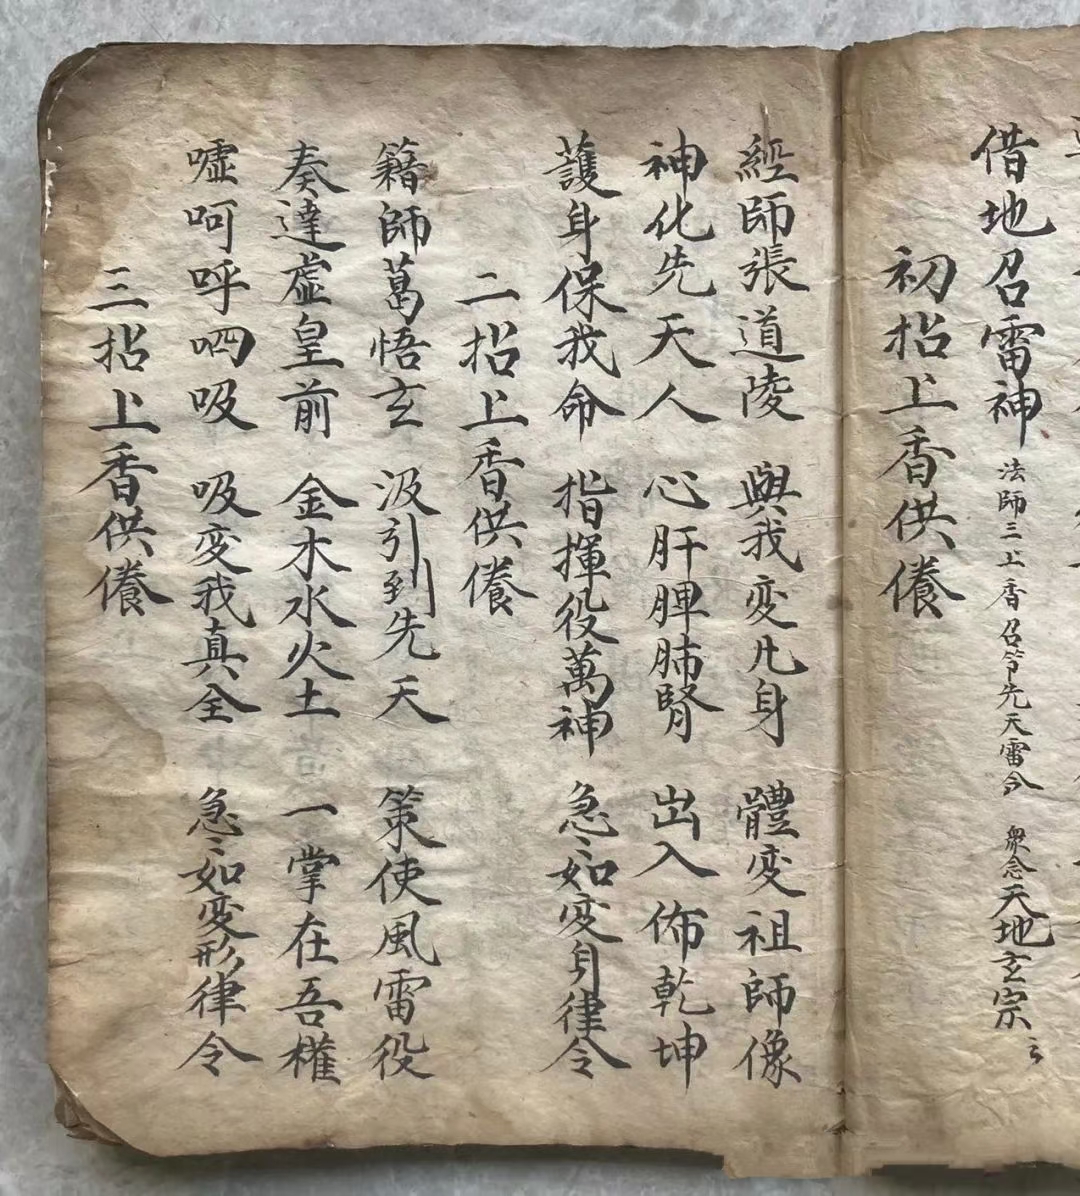 借地召雷神 法師三上香召笇先天雷令 衆念天地玄宗〻
初拈上香供養
經師張道陵 與我変凡身 體変祖師像
神化先天人 心肝脾肺腎 出入佈乾坤
護身保我命 指揮役萬神 急〻如変身律令
二拈上香供養
籍師葛悟玄 汲引到先天 策使風雷役
奏達虛皇前 金木水火土 一掌在吾權
噓呵呼呬吸 吸変我真全 急〻如変形律令
三拈上香供養